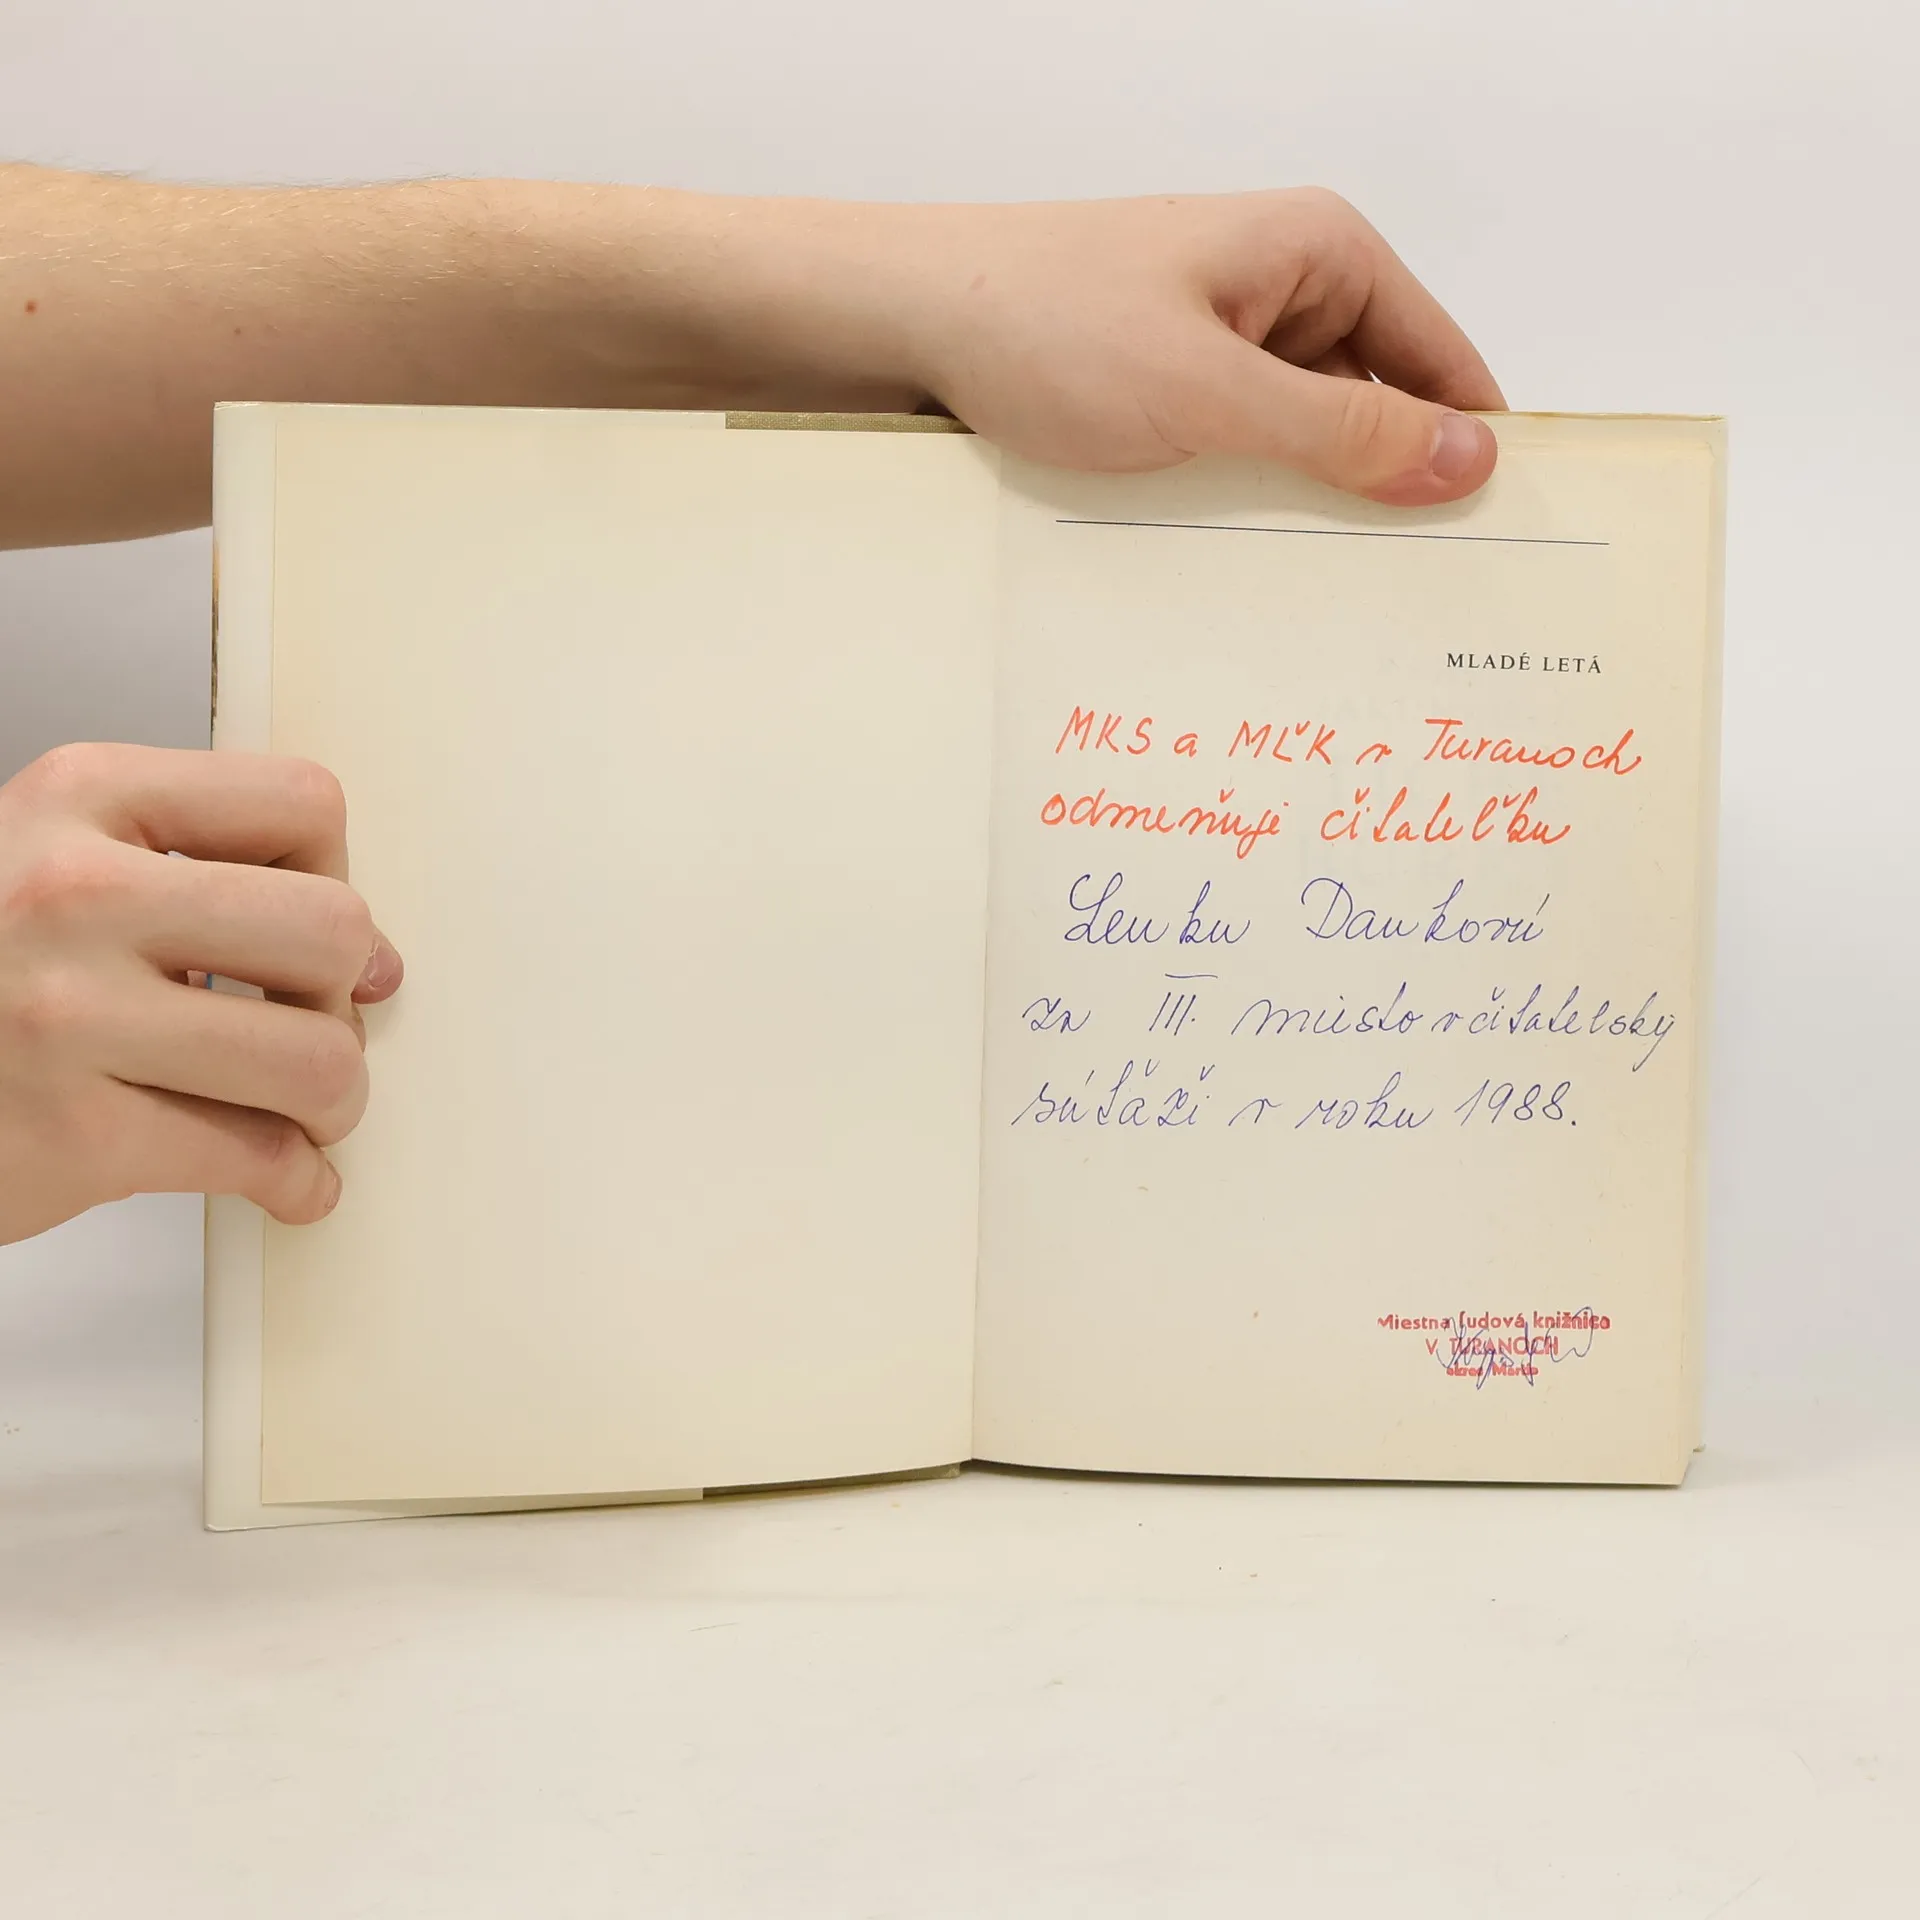 MLADÉ LETÁ
MKS a MĽK v Turanoch
odmeňuje čitateľku
Lenku Dankovú
za III. miesto v čitatelský
súťaži v roku 1988.
Miestna ľudová knižnica
V TURANOCH
okres Martin